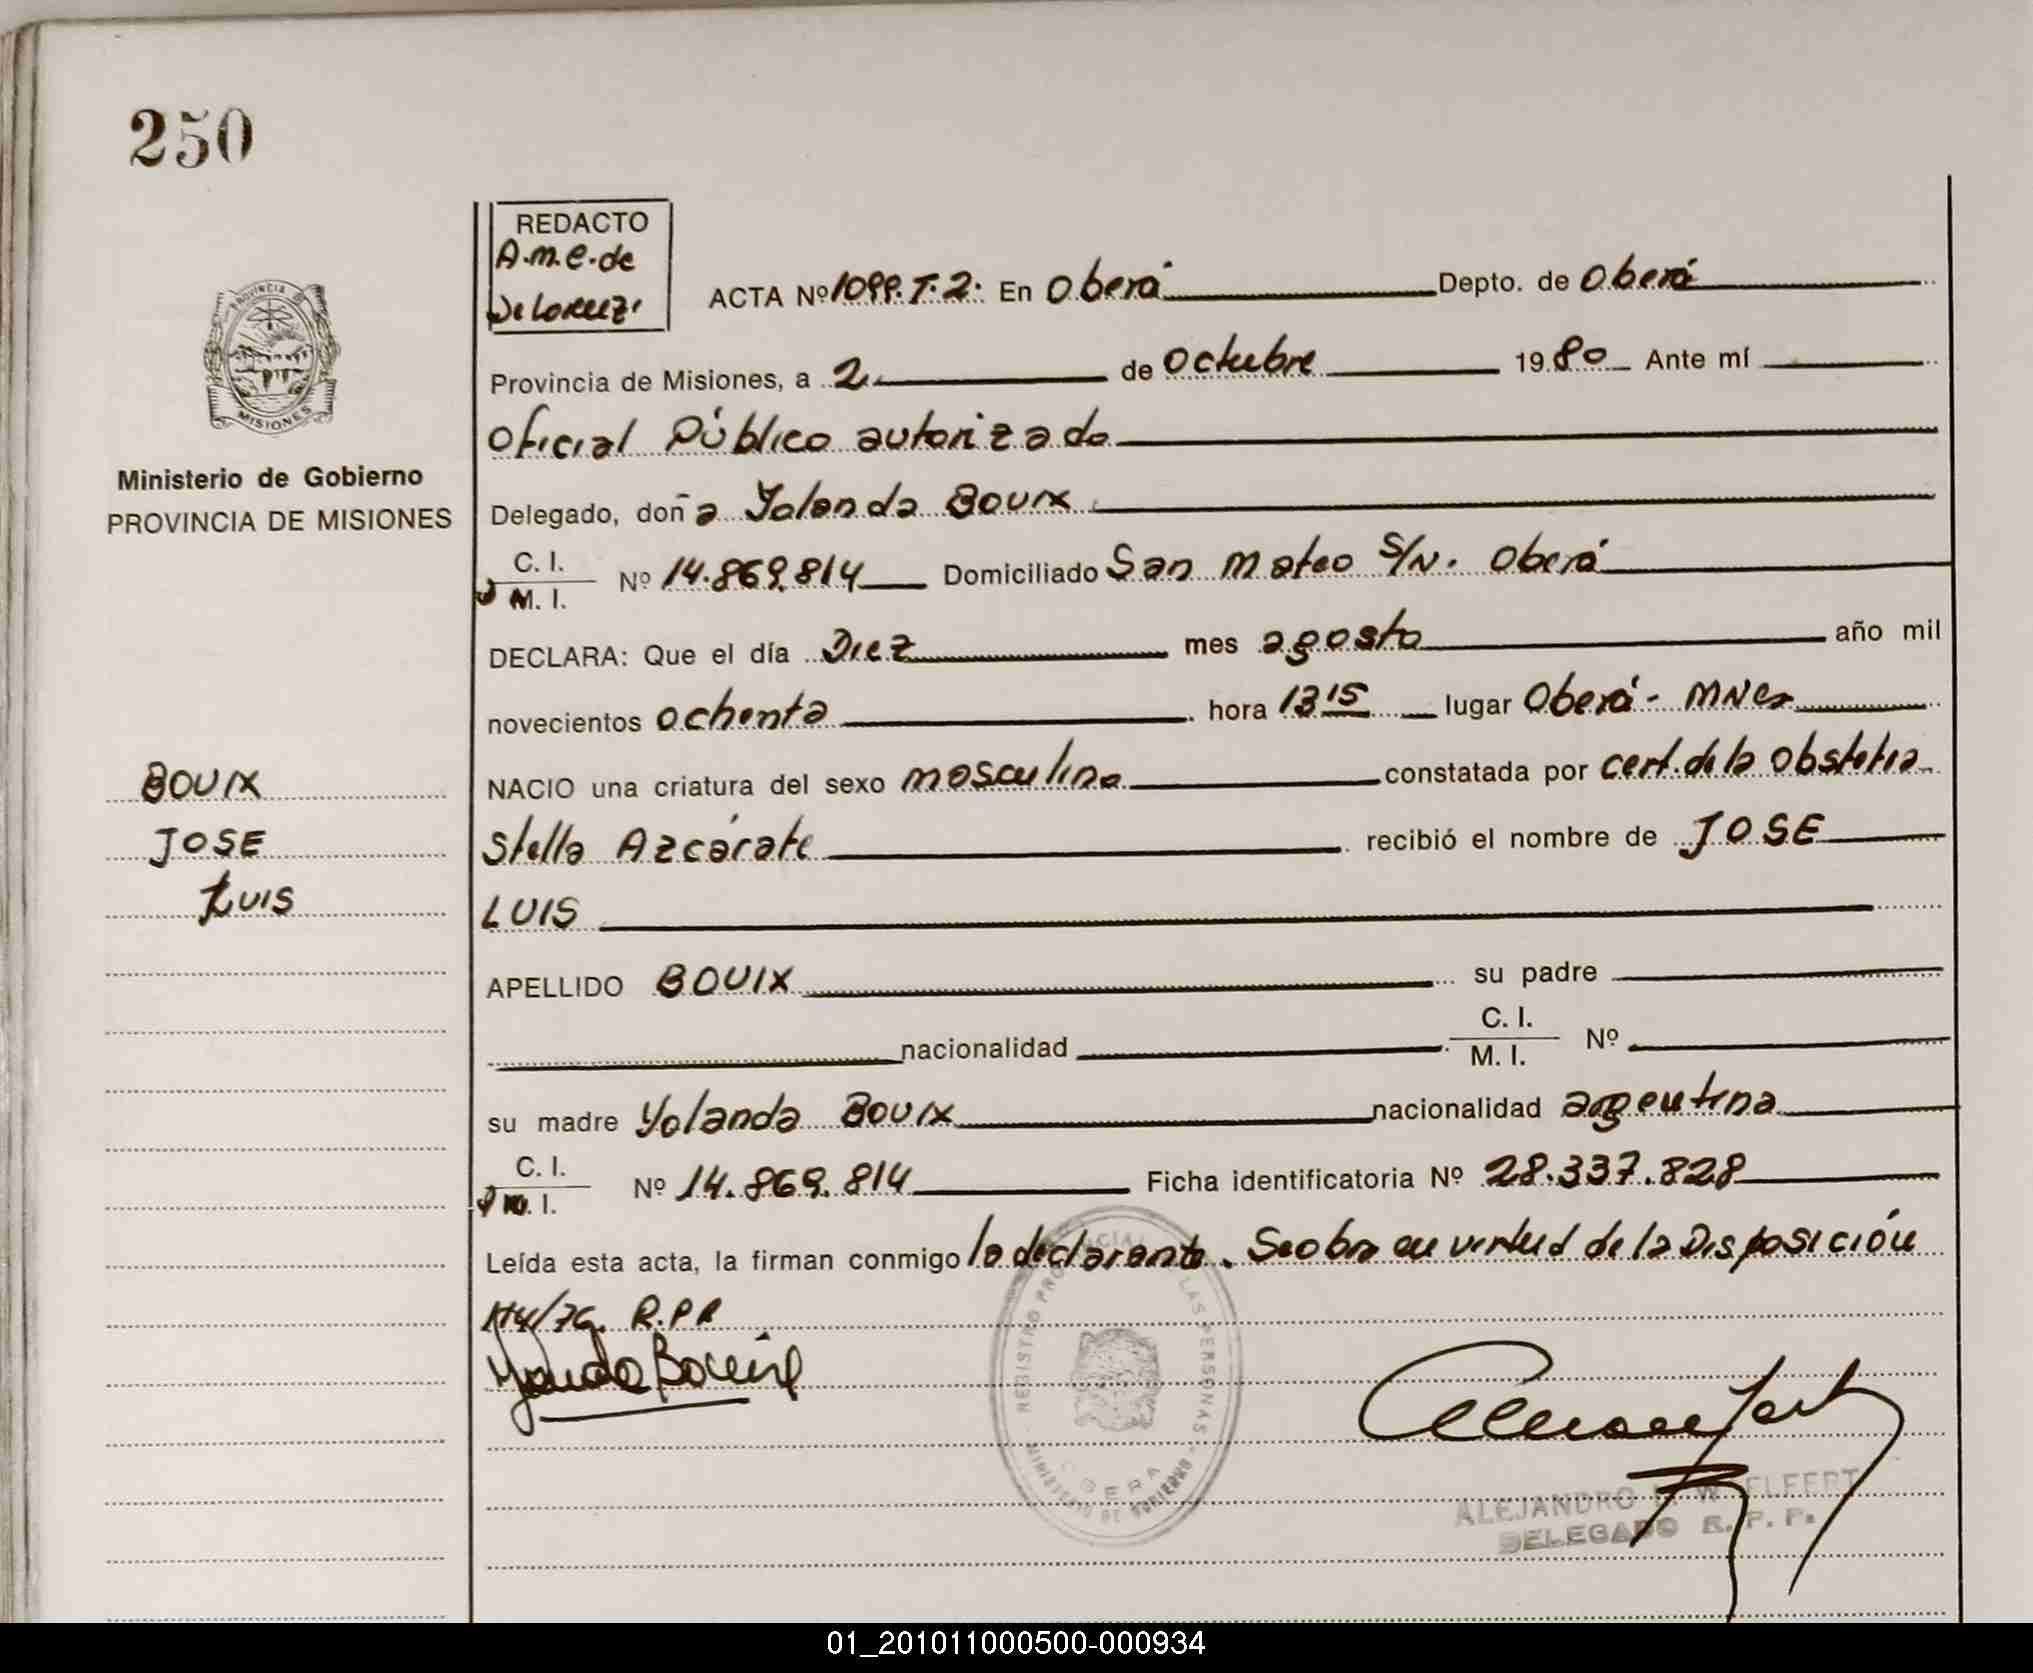 250
REDACTO
A.M.E. de
De Lorenzi
ACTA Nº 1099.T.2. En Oberá Depto. de Oberá
Provincia de Misiones, a 2 de Octubre 1980 Ante mí
Oficial Público autorizado
PROVINCIA DE
MISIONES
Ministerio de Gobierno
PROVINCIA DE MISIONES
Delegado, doña Yolanda BOUIX
C. I.
M. I. Nº 14.869.814 Domiciliado San Mateo S/N. Oberá
DECLARA: Que el día Diez mes agosto año mil
novecientos ochenta hora 13 15 lugar Oberá - MNES
NACIO una criatura del sexo masculino constatada por cert. de la Obstetra
Stella Azcárate recibió el nombre de JOSE
LUIS
BOUIX
JOSE
LUIS
APELLIDO BOUIX su padre
nacionalidad C. I.
M. I. Nº
su madre Yolanda BOUIX nacionalidad argentina
C. I.
M. I. Nº 14.869.814 Ficha identificatoria Nº 28.337.828
Leída esta acta, la firman conmigo la declarante. Se obra en virtud de la Disposición
/79. R.P.P.
Yolanda Bouix
REGISTRO PROVINCIAL DE LAS PERSONAS
MINISTERIO DE GOBIERNO
OBERA
ALEJANDRO
DELEGADO R. P. P.
01_201011000500-000934